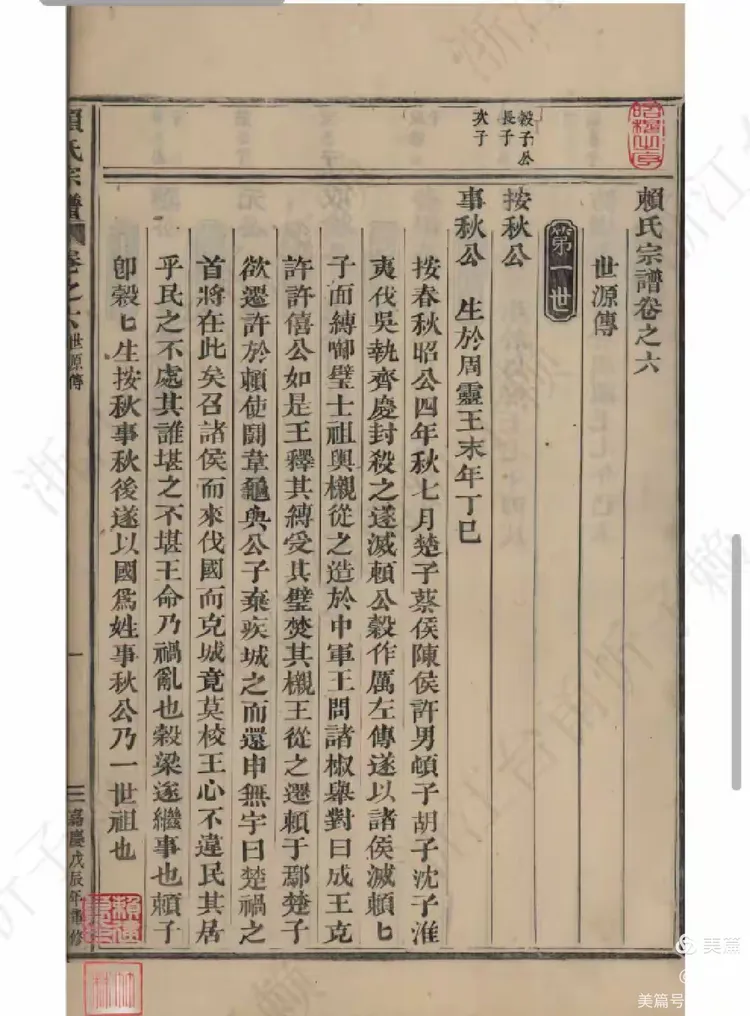 賴氏宗譜卷之六
世源傳
第一世
穀子公
長子
按秋公
次子
事秋公 生於周靈王末年丁巳
按春秋昭公四年秋七月楚子蔡侯陳侯許男頓子胡子沈子淮
夷伐吳執齊慶封殺之遂滅賴公穀作厲左傳遂以諸侯滅賴匕
子面縛啣璧士祖輿櫬從之造於中軍王問諸椒舉對曰成王克
許許僖公如是王釋其縛受其璧焚其櫬王從之遷賴于鄢楚子
欲遷許於賴使鬭韋龜與公子棄疾城之而還申無宇曰楚禍之
首將在此矣召諸侯而來伐國而克城竟莫校王心不違民其居
乎民之不處其誰堪之不堪王命乃禍亂也穀梁遂繼事也賴子
卽穀匕生按秋事秋後遂以國爲姓事秋公乃一世祖也
賴氏宗譜 卷之六 世源傳 一 嘉慶戊辰年重修
美篇
美篇号